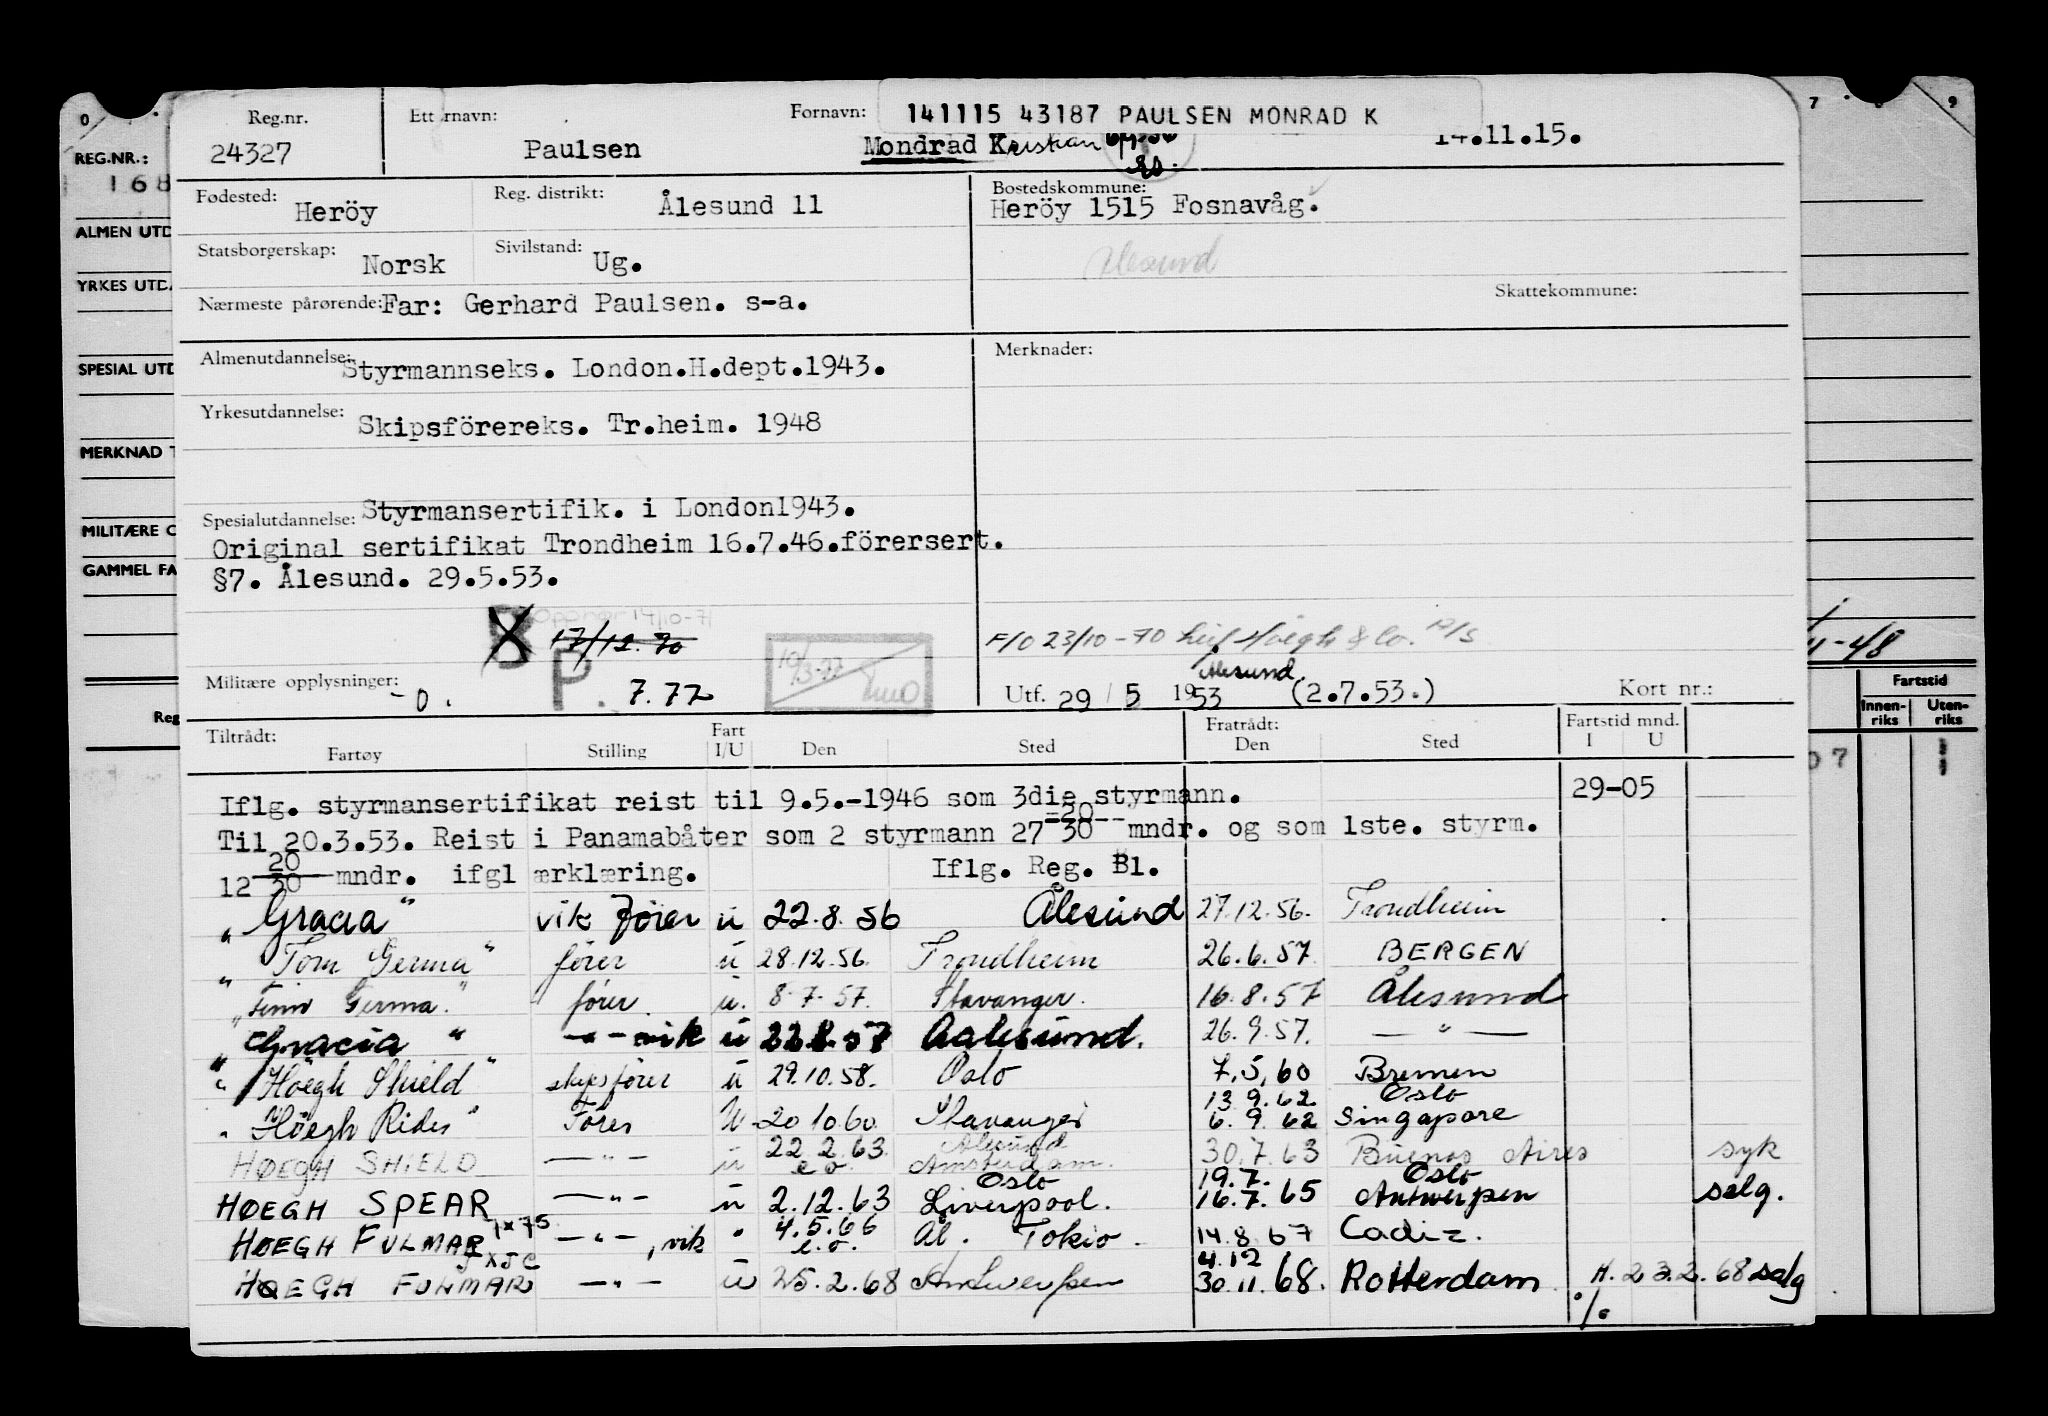 Reg.nr. Etternavn: Fornavn: 141115 43187 PAULSEN MONRAD K
24327 Paulsen Mondrad Kristian 14.11.15.
REG.NR.:
168
Fødested: Heröy Reg. distrikt: Ålesund 11 Bostedskommune: Heröy 1515 Fosnavåg.
ALMEN UTD
Statsborgerskap: Norsk Sivilstand: Ug. Ålesund
YRKES UTD
Nærmeste pårørende: Far: Gerhard Paulsen. s-a. Skattekommune:
SPESIAL UTD
Almenutdannelse: Styrmannseks. London.H.dept.1943. Merknader:
Yrkesutdannelse: Skipsförereks. Tr.heim. 1948
MERKNAD T
Spesialutdannelse: Styrmansertifik. i London1943.
MILITÆRE O
Original sertifikat Trondheim 16.7.46.förersert.
GAMMEL FA
§7. Ålesund. 29.5.53.
14/10-71
17/12.70 10/3-77
F/O 23/10-70 Leif Höegh & Co. A/S
11-48
Militære opplysninger: -0. P. 7.77 Utf. 29/5 1953 Ålesund (2.7.53.) Kort nr.:
Fartstid
Innen-riks Uten-riks
Reg
Tiltrådt: Fartøy Stilling Fart I/U Den Sted Fratrådt: Den Sted Fartstid mnd. I U
07
Iflg. styrmansertifikat reist til 9.5.-1946 som 3die styrmann. 29-05
Til 20.3.53. Reist i Panamabåter som 2 styrmann 27 20/30 mndr. og som 1ste. styrm.
12 20/30 mndr. ifgl ærklæring. Iflg. Reg. Bl.
"Gracia" vik fører u 22.8.56 Ålesund 27.12.56. Trondheim
"Tom Germa" fører u 28.12.56. Trondheim 26.6.57. BERGEN
"Finn Germa." fører. u. 8.7.57. Stavanger. 16.8.57 Ålesund
"Gracia" -"- vik u 22.8.57 Aalesund. 26.9.57. —"—
"Höegh Shield" skipsfører u 29.10.58. Oslo 7.5.60 Bremen
"Höegh Rider" Fører U 20.10.60. Stavanger 13.9.62 Oslo 6.9.62 Singapore
HØEGH SHIELD —"— u 22.2.63. e.o. Ålesund Amsterdam. 30.7.63 Buenos Aires syk
HØEGH SPEAR —"— u 2.12.63 Oslo Liverpool. 19.7. Oslo 16.7.65 Antwerpen selg.
HØEGH FULMAR —"—, vik " 4.5.66 e.o. Ål. Tokio. 14.8.67 Cadiz.
HØEGH FULMAR —"— u 25.2.68 Antwerpen 4.12 30.11.68. Rotterdam H. 23.2.68 selg